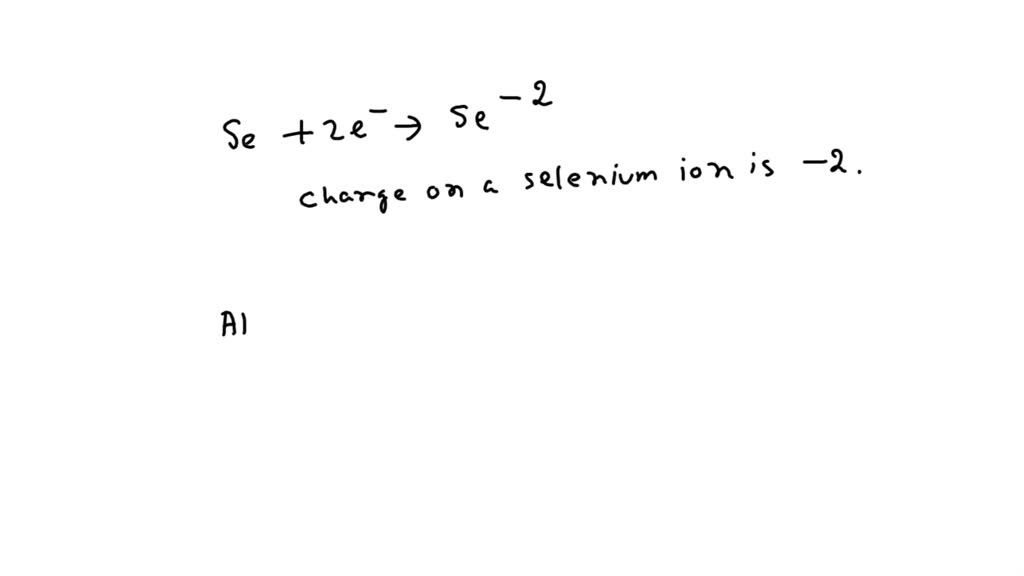 Se + 2e⁻ → Se⁻²
charge on a selenium ion is -2.
Al